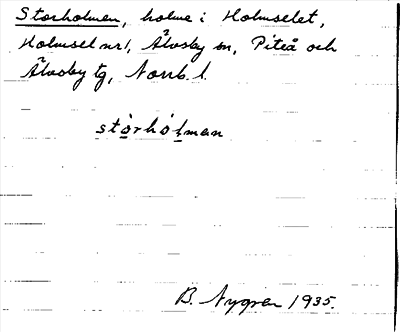 Storholmen, holme i Holmselet,
Holmsel nr 1, Älvsby sn, Piteå och
Älvsby tg, Norrb. l.
stòrhòlman
B. Nygren 1935.